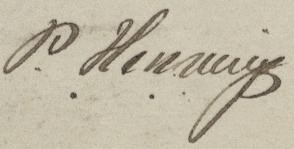 P. Hennings